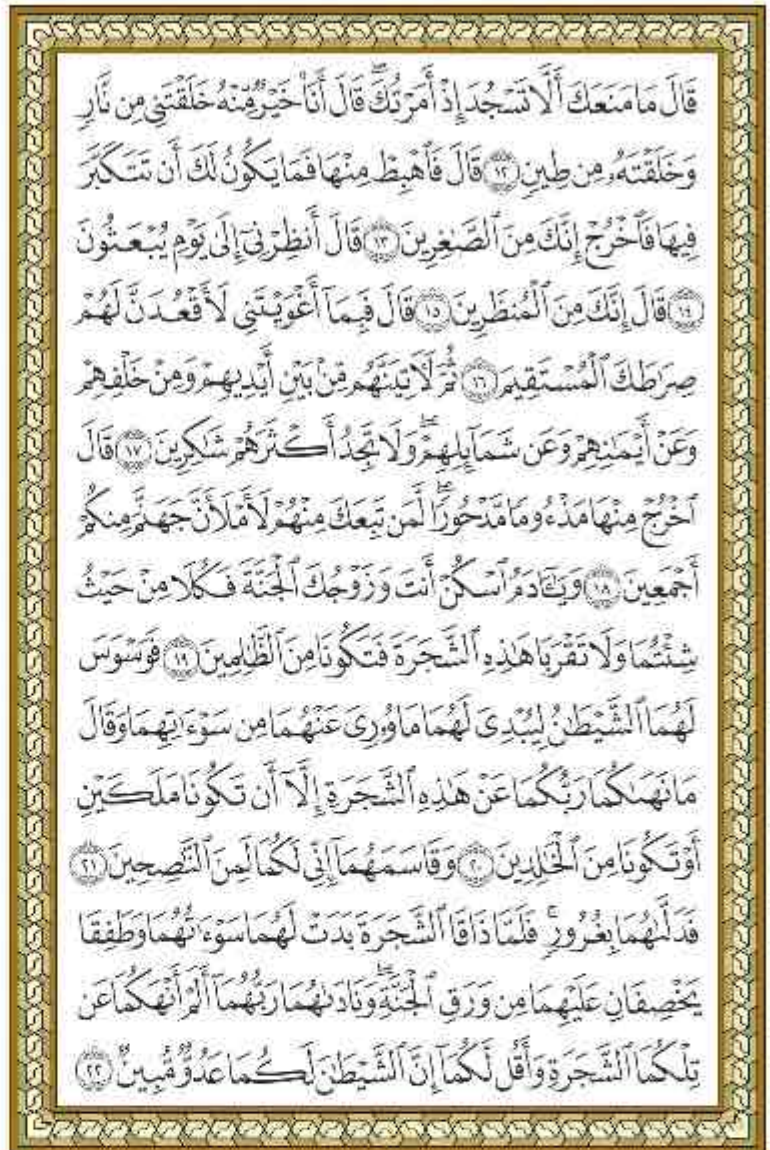 قَالَ مَا مَنَعَكَ أَلَّا تَسْجُدَ إِذْ أَمَرْتُكَ ۖ قَالَ أَنَا۠ خَيْرٌ مِّنْهُ خَلَقْتَنِي مِن نَّارٍ
وَخَلَقْتَهُۥ مِن طِينٍ ١٢ قَالَ فَٱهْبِطْ مِنْهَا فَمَا يَكُونُ لَكَ أَن تَتَكَبَّرَ
فِيهَا فَٱخْرُجْ إِنَّكَ مِنَ ٱلصَّٰغِرِينَ ١٣ قَالَ أَنظِرْنِيٓ إِلَىٰ يَوْمِ يُبْعَثُونَ
١٤ قَالَ إِنَّكَ مِنَ ٱلْمُنظَرِينَ ١٥ قَالَ فَبِمَآ أَغْوَيْتَنِي لَأَقْعُدَنَّ لَهُمْ
صِرَٰطَكَ ٱلْمُسْتَقِيمَ ١٦ ثُمَّ لَءَاتِيَنَّهُم مِّنۢ بَيْنِ أَيْدِيهِمْ وَمِنْ خَلْفِهِمْ
وَعَنْ أَيْمَٰنِهِمْ وَعَن شَمَآئِلِهِمْ ۖ وَلَا تَجِدُ أَكْثَرَهُمْ شَٰكِرِينَ ١٧ قَالَ
ٱخْرُجْ مِنْهَا مَذْءُومًا مَّدْحُورًا ۖ لَّمَن تَبِعَكَ مِنْهُمْ لَأَمْلَأَنَّ جَهَنَّمَ مِنكُمْ
أَجْمَعِينَ ١٨ وَيَٰٓـَٔادَمُ ٱسْكُنْ أَنتَ وَزَوْجُكَ ٱلْجَنَّةَ فَكُلَا مِنْ حَيْثُ
شِئْتُمَا وَلَا تَقْرَبَا هَٰذِهِ ٱلشَّجَرَةَ فَتَكُونَا مِنَ ٱلظَّٰلِمِينَ ١٩ فَوَسْوَسَ
لَهُمَا ٱلشَّيْطَٰنُ لِيُبْدِيَ لَهُمَا مَا وُۥرِيَ عَنْهُمَا مِن سَوْءَٰتِهِمَا وَقَالَ
مَا نَهَىٰكُمَا رَبُّكُمَا عَنْ هَٰذِهِ ٱلشَّجَرَةِ إِلَّآ أَن تَكُونَا مَلَكَيْنِ
أَوْ تَكُونَا مِنَ ٱلْخَٰلِدِينَ ٢٠ وَقَاسَمَهُمَآ إِنِّي لَكُمَا لَمِنَ ٱلنَّٰصِحِينَ ٢١
فَدَلَّىٰهُمَا بِغُرُورٍ ۚ فَلَمَّا ذَاقَا ٱلشَّجَرَةَ بَدَتْ لَهُمَا سَوْءَٰتُهُمَا وَطَفِقَا
يَخْصِفَانِ عَلَيْهِمَا مِن وَرَقِ ٱلْجَنَّةِ ۖ وَنَادَىٰهُمَا رَبُّهُمَآ أَلَمْ أَنْهَكُمَا عَن
تِلْكُمَا ٱلشَّجَرَةِ وَأَقُل لَّكُمَآ إِنَّ ٱلشَّيْطَٰنَ لَكُمَا عَدُوٌّ مُّبِينٌ ٢٢